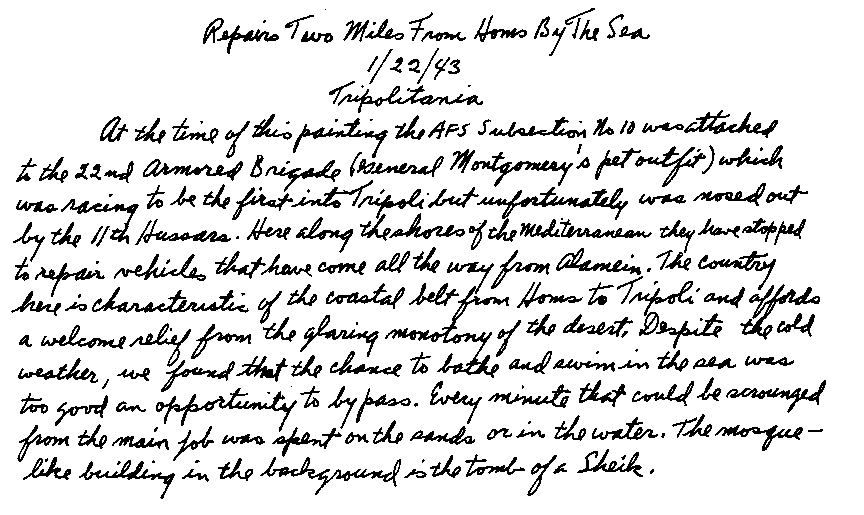 Repairs Two Miles From Homs By The Sea
1/22/43
Tripolitania
At the time of this painting the AFS Subsection No 10 was attached
to the 22nd Armored Brigade (General Montgomery's pet outfit) which
was racing to be the first into Tripoli but unfortunately was nosed out
by the 11th Hussars. Here along the shores of the Mediterranean they have stopped
to repair vehicles that have come all the way from Alamein. The country
here is characteristic of the coastal belt from Homs to Tripoli and affords
a welcome relief from the glaring monotony of the desert. Despite the cold
weather, we found that the chance to bathe and swim in the sea was
too good an opportunity to by pass. Every minute that could be scrounged
from the main job was spent on the sands or in the water. The mosque-
like building in the background is the tomb of a Sheik.